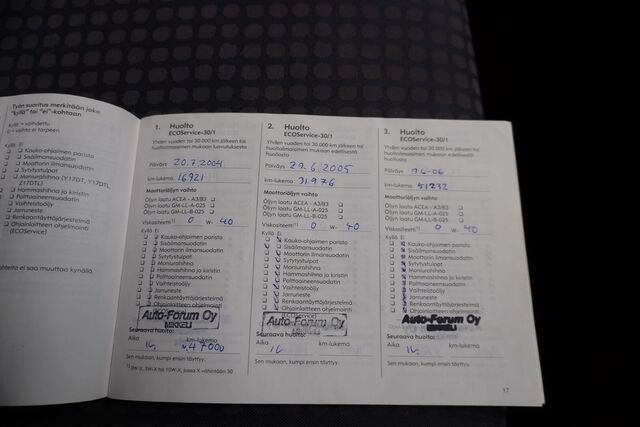 Työn suoritus merkitään joko
"kyllä" tai "ei"-kohtaan
Kyllä = vaihdettu
Ei = vaihto ei tarpeen
Kyllä Ei
Kauko-ohjaimen paristo
Sisäilmansuodatin
Moottorin ilmansuodatin
Sytytystulpat
Moniurahihna (Y17DT, Y17DTL,
Z17DTL)
Hammashihna ja kiristin
Polttoaineensuodatin
Vaihteistoöljy
Jarruneste
Renkaantäyttöjärjestelmä
Ohjainlaitteen ohjelmointi
(ECOService)
ei saa muuttaa kynällä.
1. Huolto
ECOService-30/1
Yhden vuoden tai 30.000 km jälkeen tai
huoltoilmaisimen mukaan luovutuksesta
Päiväys 20.7.2004
km-lukema 16921
Moottoriöljyn vaihto
Öljyn laatu ACEA - A3/B3
Öljyn laatu GM-LL-A-025
Öljyn laatu GM-LL-B-025
Viskositeetti1) 0 W- 40
Kyllä Ei
Kauko-ohjaimen paristo
Sisäilmansuodatin
Moottorin ilmansuodatin
Sytytystulpat
Moniurahihna
Hammashihna ja kiristin
Polttoaineensuodatin
Vaihteistoöljy
Jarruneste
Renkaantäyttöjärjestelmä
Ohjainlaitteen ohjelmointi
Auto-Forum Oy
MIKKELI
Seuraava huolto:
Aika km-lukema
47000
Sen mukaan, kumpi ensin täyttyy.
1) 0W-X, 5W-X tai 10W-X, jossa X vähintään 30
2. Huolto
ECOService-30/1
Yhden vuoden tai 30.000 km jälkeen tai
huoltoilmaisimen mukaan edellisestä
huollosta
Päiväys 29.6.2005
km-lukema 31976
Moottoriöljyn vaihto
Öljyn laatu ACEA - A3/B3
Öljyn laatu GM-LL-A-025
Öljyn laatu GM-LL-B-025
Viskositeetti1) 0 W- 40
Kyllä Ei
Kauko-ohjaimen paristo
Sisäilmansuodatin
Moottorin ilmansuodatin
Sytytystulpat
Moniurahihna
Hammashihna ja kiristin
Polttoaineensuodatin
Vaihteistoöljy
Jarruneste
Renkaantäyttöjärjestelmä
Ohjainlaitteen ohjelmointi
(ECOService)
Auto-Forum Oy
MIKKELI
Seuraava huolto:
Aika km-lukema
Sen mukaan, kumpi ensin täyttyy.
3. Huolto
ECOService-30/1
Yhden vuoden tai 30.000 km jälkeen tai
huoltoilmaisimen mukaan edellisestä
huollosta
Päiväys
km-lukema 51232
Moottoriöljyn vaihto
Öljyn laatu ACEA - A3/B3
Öljyn laatu GM-LL-A-025
Öljyn laatu GM-LL-B-025
Viskositeetti1) 0 W- 40
Kyllä Ei
Kauko-ohjaimen paristo
Sisäilmansuodatin
Moottorin ilmansuodatin
Sytytystulpat
Moniurahihna
Hammashihna ja kiristin
Polttoaineensuodatin
Vaihteistoöljy
Jarruneste
Renkaantäyttöjärjestelmä
Ohjainlaitteen ohjelmointi
Auto-Forum Oy
MIKKELI
Seuraava huolto:
Aika km-lukema
Sen mukaan, kumpi ensin täyttyy.
17